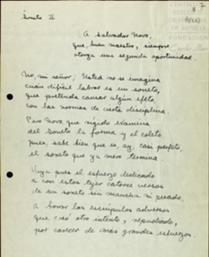 Soneto II
A Salvador Novo,
que, buen maestro, siempre
otorga una segunda oportunidad
No, mi señor; Usted no se imagina
cuán difícil labrar es un soneto,
que pretenda causar algún efeto
con las normas de esta disciplina
Pero Novo, que rígido examina
del soneto la forma y el coleto
pues, sabe bien que es, ay, casi perfeto
el soneto que ya mero termina
Vaya pues el esfuerzo dedicado
a con estos tejer catorce versos
de un soneto sin mancha ni pecado
a borrar los escrúpulos adversos
que otro intento, reprobado,
por carecer de más grandes esfuerzos.